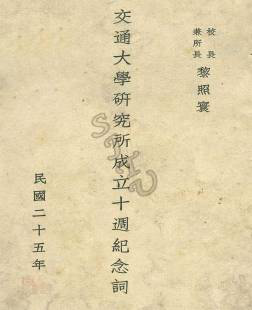 校長
兼所長
黎照寰
交通大學研究所成立十週紀念詞
民國二十五年